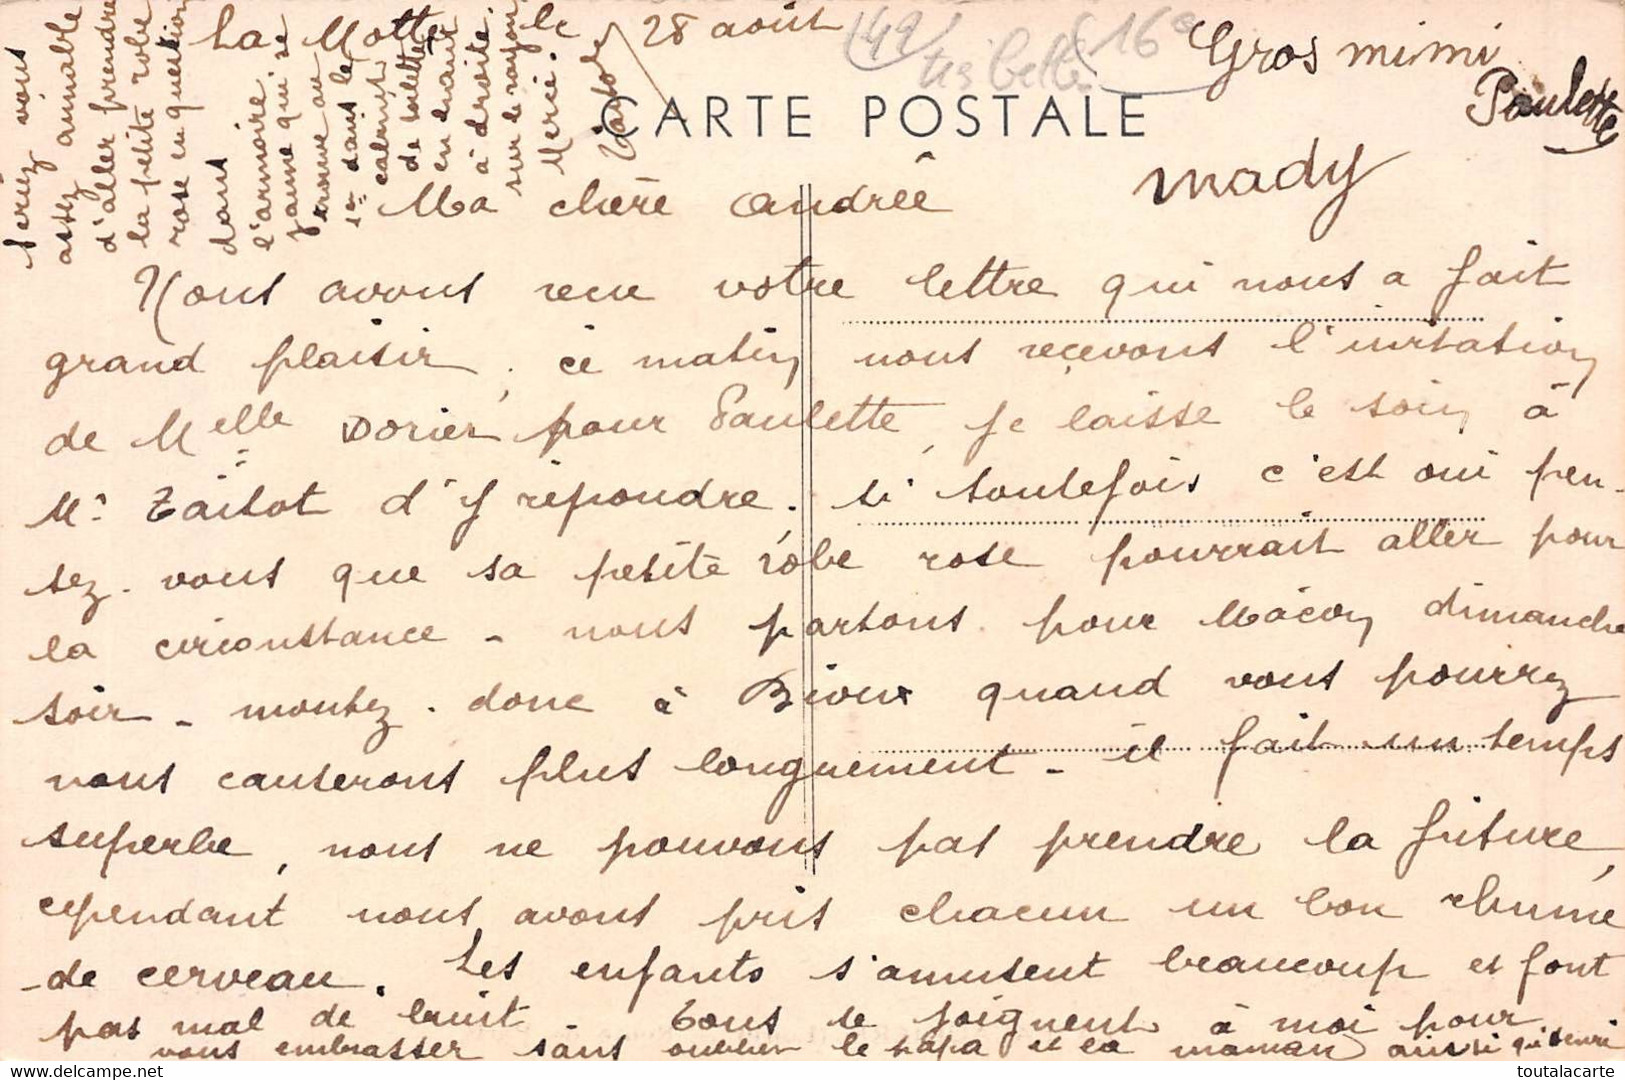 La Motte le 28 août
(49)
très belle
(16e
Gros mimi
Paulette
CARTE POSTALE
mady
Ma chère Andrée
Nous avons reçu votre lettre qui nous a fait
grand plaisir, ce matin nous recevons l'invitation
de Melle Dorier pour Paulette, je laisse le soin à
Mr d'y répondre. si toutefois c'est oui pen-
sez-vous que sa petite robe rose pourrait aller pour
la circonstance - nous partons pour Mâcon dimanche
soir - montez-donc à Bioux quand vous pourrez
nous causerons plus longuement - il fait un temps
superbe, nous ne pouvons pas prendre la friture,
cependant nous avons pris chacun un bon rhume
de cerveau. Les enfants s'amusent beaucoup et font
pas mal de bruit - Tous se joignent à moi pour
vous embrasser sans oublier le papa et la maman aussi
seriez vous
assez aimable
d'aller prendre
la petite robe
rose en question
dans
l'armoire
jaune qui se
trouve au
1er dans le
cabinet
de toilette
en entrant
à droite.
sur le rayon
Merci.
toutalacarte